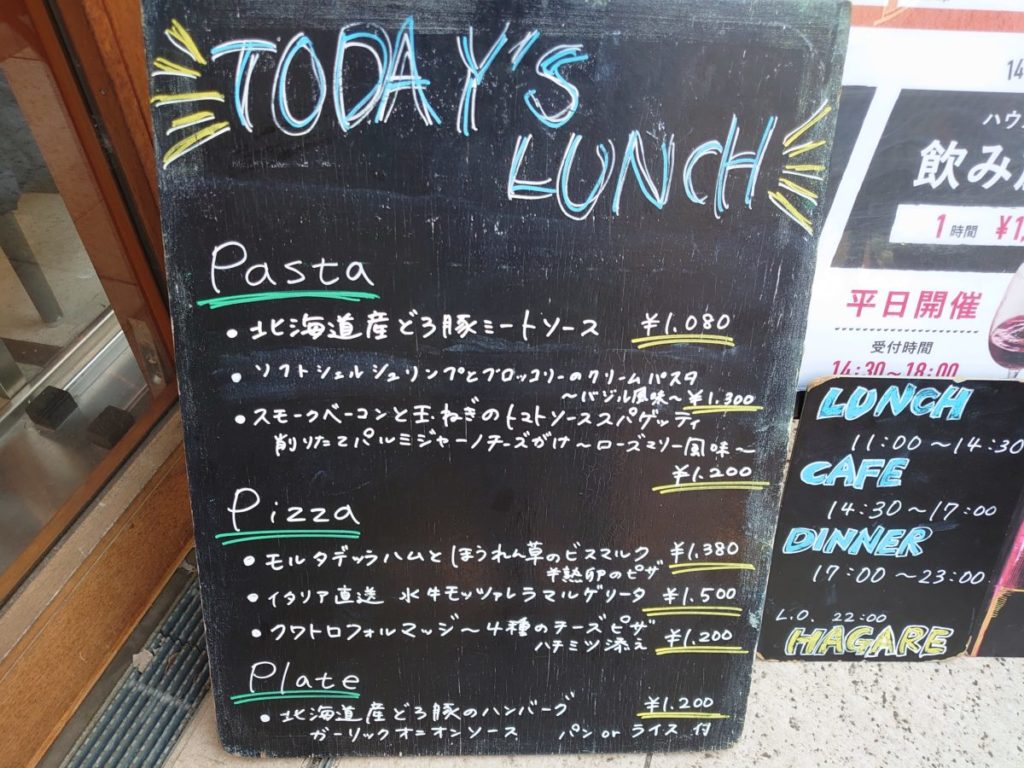 TODAY'S
LUNCH
Pasta
・北海道産どろ豚ミートソース ¥1.080
・ソフトシェルシュリンプとブロッコリーのクリームパスタ
〜バジル風味〜 ¥1.300
・スモークベーコンと玉ねぎのトマトソーススパゲッティ
削りたてパルミジャーノチーズがけ〜ローズマリー風味〜
¥1.200
Pizza
・モルタデッラハムとほうれん草のビスマルク ¥1.380
半熟卵のピザ
・イタリア直送 水牛モッツァレラマルゲリータ ¥1.500
・クワトロフォルマッジ〜4種のチーズピザ ¥1.200
ハチミツ添え
Plate
・北海道産どろ豚のハンバーグ ¥1.200
ガーリックオニオンソース パン or ライス 付
14
ハウ
飲み
1時間 ¥1,
平日開催
受付時間
14:30〜18:00
LUNCH
11:00〜14:30
CAFE
14:30〜17:00
DINNER
17:00〜23:00
L.O. 22:00
HAGARE